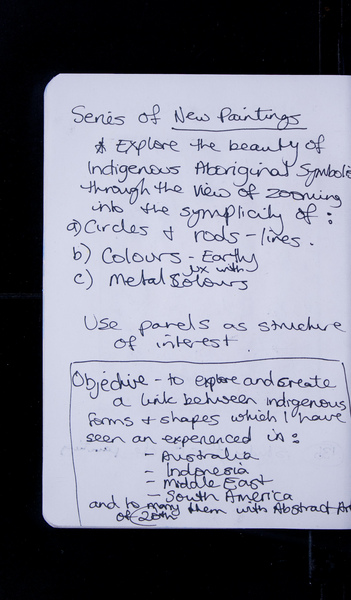 Series of New Paintings
* Explore the beauty of
Indigenous Aboriginal Symbolis
through the view of zooming
into the symplicity of :
a) Circles + rods - lines.
b) Colours - Earthy
mix with
c) Metal Colours
Use panels as structure
of interest.
Objective - to explore and create
a link between indigenous
forms + shapes which I have
seen an experienced in :
- Australia
- Indonesia
- Middle East
- South America
and to marry them with Abstract Art
of 20th